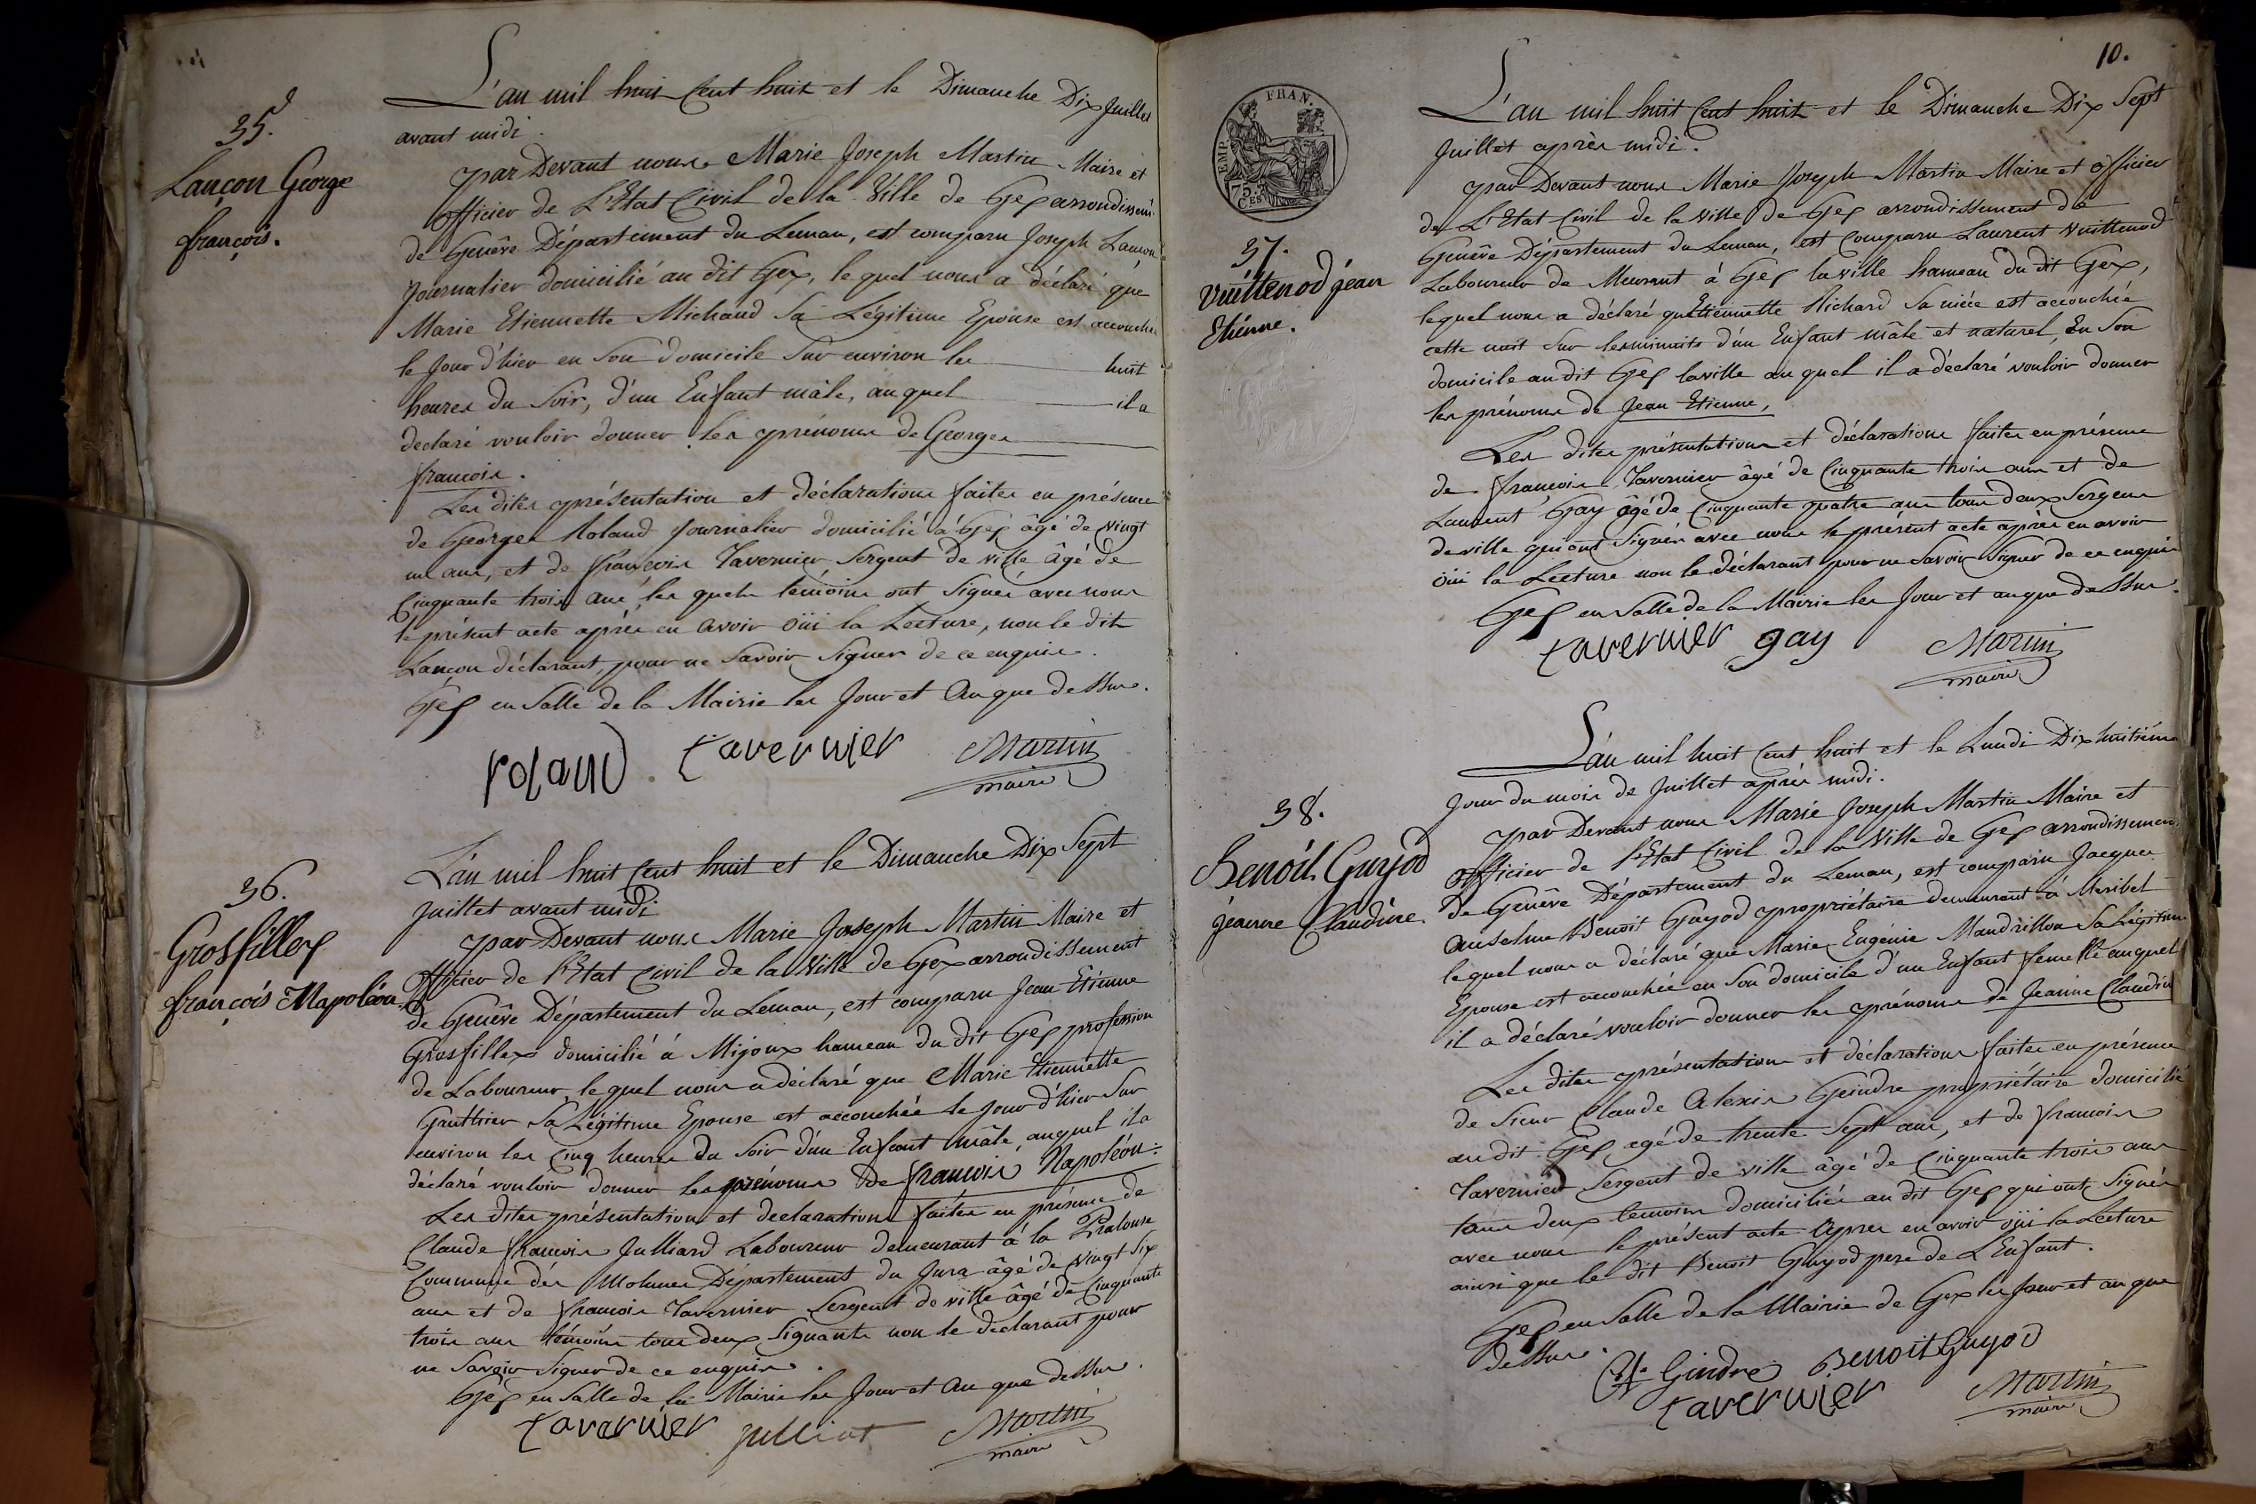 35.
Lançon George
françois.
L'an mil huit Cent huit et le Dimanche Dix Juillet
avant midi.
par Devant nous Marie Joseph Martin Maire et
officier de L'Etat Civil de la Ville de Gex arrondissemt
de Genêve Département du Leman, est comparu Joseph Lancon
Journalier domicilié au dit Gex, le quel nous a déclaré que
Marie Etiennette Michaud Sa Légitime Epouse est accouchée
le Jour d'hier en Son domicile Sur environ les huit
heures du Soir, d'un Enfant mâle, auquel il a
déclaré vouloir donner les prénoms de Georges
francois.
Les dites présentation et déclarations faites en présence
de Georges Roland Journalier domicilié à Gex âgé de vingt
un ans, et de françois Tavernier Sergent de ville âgé de
Cinquante trois ans les quels temoins ont Signés avec nous
le présent acte après en avoir öüi la Lecture, non le dit
Lançon déclarant, pour ne Savoir Signer de ce enquis.
Gex en Salle de la Mairie les Jour et An que dessus.
roland tavernier Martin
maire
36.
Grosfillex
françois Napoléon
L'an mil huit Cent huit et le Dimanche Dix Sept
Juillet avant midi
par Devant nous Marie Joseph Martin Maire et
officier de l'Etat Civil de la Ville de Gex arrondissement
de Genêve Département du Leman, est comparu Jean Etienne
Grosfillex domicilié à Mijoux hameau du dit Gex profession
de Laboureur, le quel nous a déclaré que Marie Etiennette
Gauthier Sa Légitime Epouse est accouchée le Jour d'hier Sur
environ les Cinq heures du Soir d'un Enfant mâle, auquel il a
déclaré vouloir donner les prénoms de francois Napoléon.
Les dites présentation et declarations faites en présence de
Claude francois Julliard Laboureur demeurant à la
Commune des Département du Jura âgé de vingt Six
ans et de francois Tavernier Sergent de ville âgé de Cinquante
trois ans témoins tous deux Signants non le declarant pour
ne Savoir Signer de ce enquis.
Gex en Salle de la Mairie les Jour et An que dessus.
tavernier Martin
maire
10.
EMP. FRAN.
75
CES
37.
Vuittenod jean
Etienne.
L'an mil huit Cent huit et le Dimanche Dix Sept
Juillet après midi.
par Devant nous Marie Joseph Martin Maire et officier
de L'Etat Civil de la ville de Gex arrondissement de
Genêve Département du Leman, est Comparu Laurent Vuittenod
Laboureur de Meurant à Gex la ville hameau du dit Gex,
lequel nous a déclaré qu'Etiennette Richard Sa nièce est accouchée
cette nuit Sur les minuits d'un Enfant mâle et naturel, En Son
domicile au dit Gex la ville auquel il a déclaré vouloir donner
les prénoms de Jean Etienne,
Les dites présentations et déclarations faites en présence
de françois Tavernier âgé de Cinquante trois ans et de
Laurent Gay âgé de Cinquante quatre ans tous deux Sergens
de ville qui ont Signés avec nous le present acte après en avoir
öüi la Lecture non le déclarant pour ne Savoir Signer de ce enquis
Gex en Salle de la Mairie les Jour et an que dessus.
tavernier gay Martin
maire
38.
Benoit Guyod
jeanne Claudine.
L'an mil huit Cent huit et le Lundi Dix huitième
Jour du mois de Juillet après midi.
par Devant nous Marie Joseph Martin Maire et
officier de l'Etat Civil de la Ville de Gex arrondissement
de Genêve Département du Leman, est comparu Jacques
Anselme Benoit Guyod propriétaire demeurant à Meribel
lequel nous a déclaré que Marie Eugénie Mandrillon Sa Légitime
Epouse est accouchée en Son domicile d'un Enfant femelle auquel
il a déclaré vouloir donner les prénoms de Jeanne Claudine
Les dites présentation et déclarations faites en présence
de Sieur Claude Alexis Geindre propriétaire domicilié
au dit Gex agé de trente Sept ans, et de francois
Tavernier Sergent de ville âgé de Cinquante trois ans
tous deux temoins domiciliés au dit Gex qui ont Signés
avec nous le présent acte Apres en avoir öüi la Lecture
ainsi que le dit Benoit Guyod pere de L'Enfant.
Gex en Salle de la Mairie de Gex les Jour et an que
dessus.
Gindre Benoit Guyod
tavernier Martin
maire